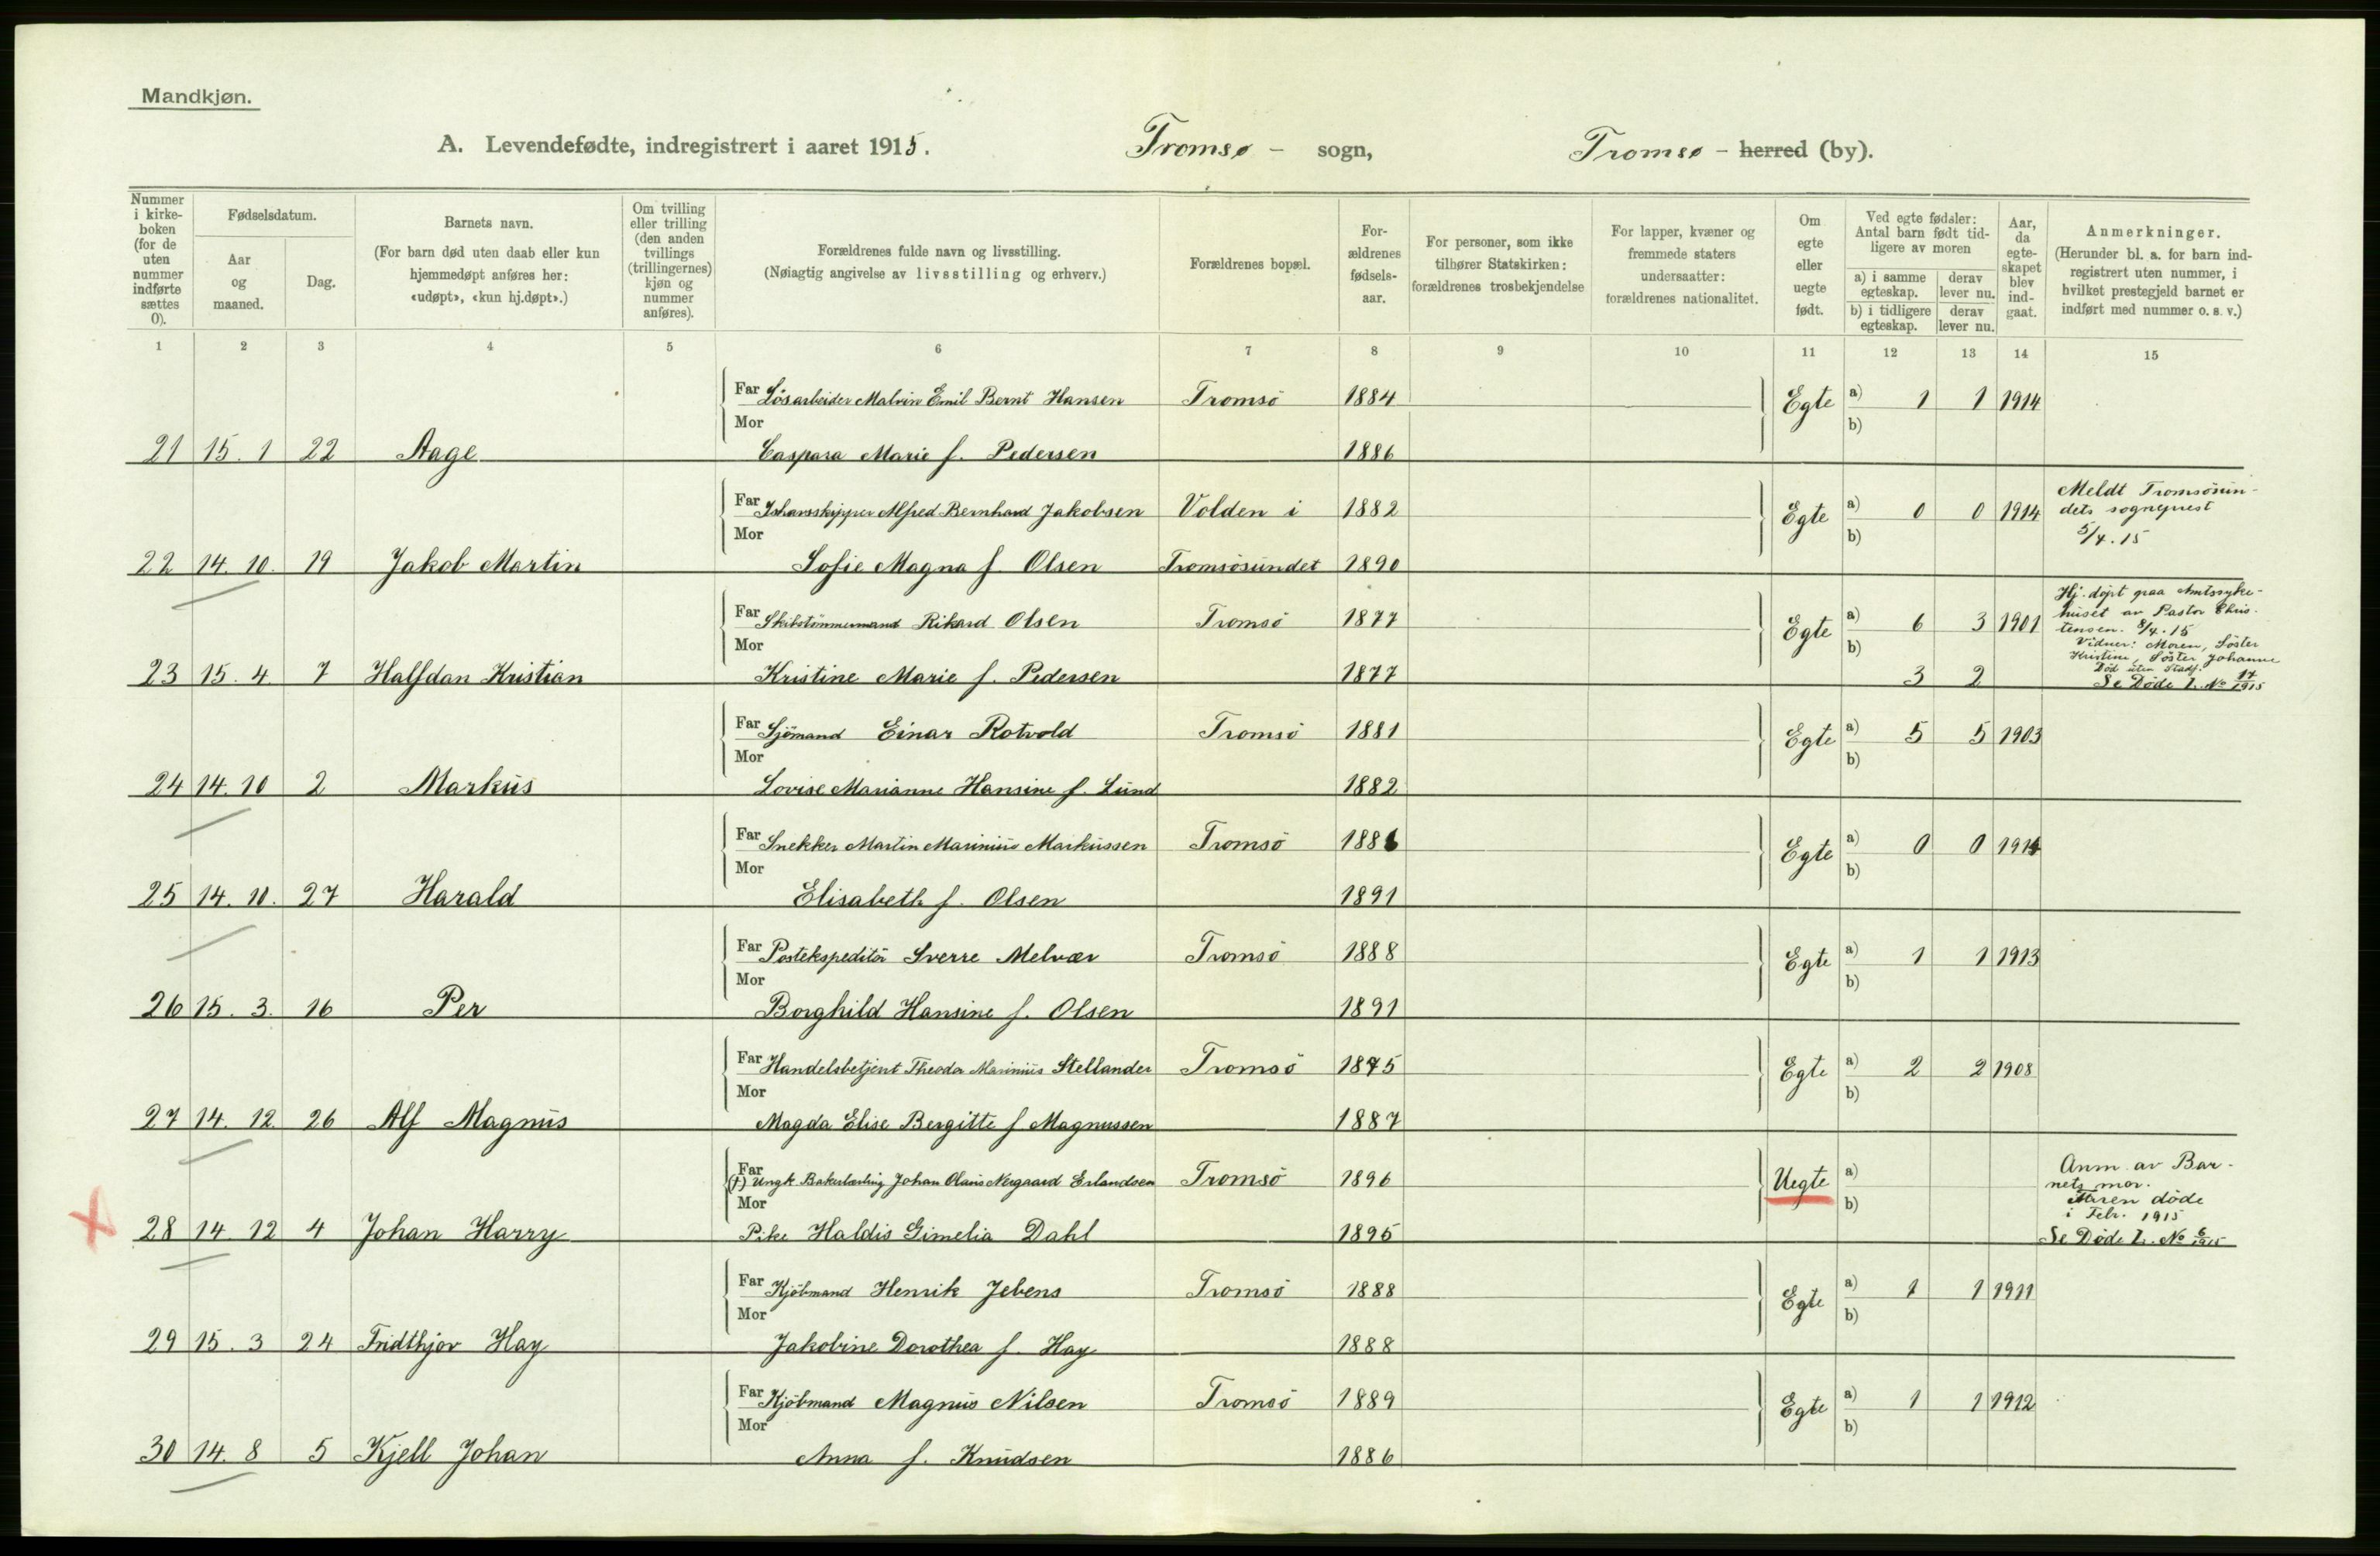 Mandkjøn.
A. Levendefødte, indregistrert i aaret 1915. Tromsø - sogn, Tromsø - herred (by).
Nummer i kirke-boken (for de uten nummer indførte sættes 0).
Fødselsdatum.
Aar og maaned.
Dag.
Barnets navn.
(For barn død uten daab eller kun hjemmedøpt anføres her: «udøpt», «kun hj.døpt».)
Om tvilling eller trilling (den anden tvillings (trillingernes) kjøn og nummer anføres).
Forældrenes fulde navn og livsstilling.
(Nøiagtig angivelse av livsstilling og erhverv.)
Forældrenes bopæl.
For-ældrenes fødsels-aar.
For personer, som ikke tilhører Statskirken: forældrenes trosbekjendelse
For lapper, kvæner og fremmede staters undersaatter: forældrenes nationalitet.
Om egte eller uegte født.
Ved egte fødsler: Antal barn født tid-ligere av moren
a) i samme egteskap. derav lever nu.
b) i tidligere egteskap. derav lever nu.
Aar, da egte-skapet blev ind-gaat.
Anmerkninger.
(Herunder bl. a. for barn ind-registrert uten nummer, i hvilket prestegjeld barnet er indført med nummer o. s. v.)
1 2 3 4 5 6 7 8 9 10 11 12 13 14 15
Far Løsarbeider Malvin Emil Bernt Hansen Tromsö 1884 Egte a) 1 1 1914
Mor b)
21 15. 1 22 Aage Caspara Marie f. Pedersen 1886
Far Ishavsskipper Alfred Bernhard Jakobsen Volden i 1882 Egte a) 0 0 1914 Meldt Tromsösun-
dets sogneprest
Mor b) 5/4. 15
22 14. 10. 19 Jakob Martin Sofie Magna f. Olsen Tromsösundet 1890
Far Skibstömmermand Rikard Olsen Tromsö 1877 Egte a) 6 3 1901 Hj. döpt paa Amtssyke-
huset av Pastor Chris-
tensen. 8/4. 15
Mor b) Vidner: Moren, Söster
Kristine, Söster Johanne
Död uten Stadf.
23 15. 4 7 Halfdan Kristian Kristine Marie f. Pedersen 1877 3 2 Se Döde L. No 17/1915
Far Sjömand Einar Rotvold Tromsö 1881 Egte a) 5 5 1903
Mor b)
24 14. 10 2 Markus Lovise Marianne Hansine f. Lund 1882
Far Snekker Martin Marinius Markussen Tromsö 1886 Egte a) 0 0 1914
Mor b)
25 14. 10. 27 Harald Elisabeth f. Olsen 1891
Far Postekspeditör Sverre Melvær Tromsö 1888 Egte a) 1 1 1913
Mor b)
26 15. 3. 16 Per Borghild Hansine f. Olsen 1891
Far Handelsbetjent Theodor Marinius Stellander Tromsö 1875 Egte a) 2 2 1908
Mor b)
27 14. 12. 26 Alf Magnus Magda Elise Bergitte f Magnussen 1887
Far Ungk Bakerlærling Johan Olaus Nergaard Erlandsen Tromsö 1896 Uegte a) Anm. av Bar-
nets mor.
Mor b) Moren döde
i Febr. 1915
28 14. 12 4 Johan Harry Pike Haldis Gimelia Dahl 1895 Se Döde L. No 6/1915
Far Kjöbmand Henrik Jebens Tromsö 1888 Egte a) 1 1 1911
Mor b)
29 15. 3 24 Fridthjov Hay Jakobine Dorothea f. Hay 1888
Far Kjöbmand Magnus Nilsen Tromsö 1889 Egte a) 1 1 1912
Mor b)
30 14. 8 5 Kjell Johan Anna f. Knudsen 1886